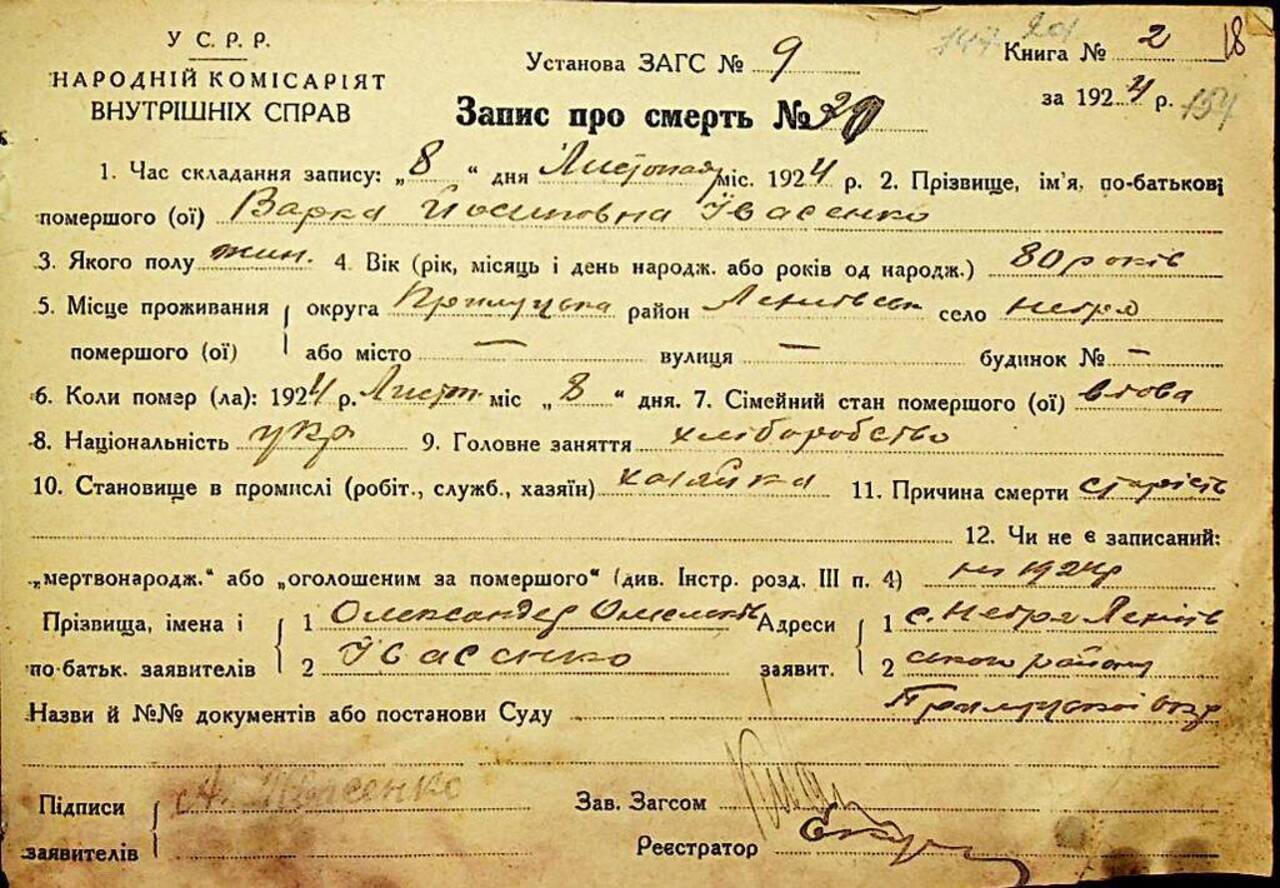 У С. Р. Р.
НАРОДНІЙ КОМІСАРІЯТ
ВНУТРІШНІХ СПРАВ
Установа ЗАГС № 9
Книга № 2 18
за 1924 р. 154
Запис про смерть №
1. Час складання запису: „8“ дня Листопад міс. 1924 р. 2. Прізвище, ім'я, по-батькові
помершого (ої) Варка Йосиповна Івасенко
3. Якого полу жин. 4. Вік (рік, місяць і день народж. або років од народж.) 80 років
5. Місце проживання помершого (ої) округа Прилуцька район Ленівськ село
або місто — вулиця — будинок № —
6. Коли помер (ла): 1924 р. Лист міс „8“ дня. 7. Сімейний стан помершого (ої) вдова
8. Національність укр 9. Головне заняття хліборобство
10. Становище в промислі (робіт., служб., хазяїн) хазяйка 11. Причина смерти старість
12. Чи не є записаний:
„мертвонародж.“ або „оголошеним за помершого“ (див. Інстр. розд. III п. 4) 1924р
Прізвища, імена і по-батьк. заявителів 1 Олександер Омельків Адреси заявит. 1 с.
2 Івасенко 2 ського району
Назви й №№ документів або постанови Суду Прилуцької окр
Підписи заявителів Івасенко Зав. Загсом
Реєстратор